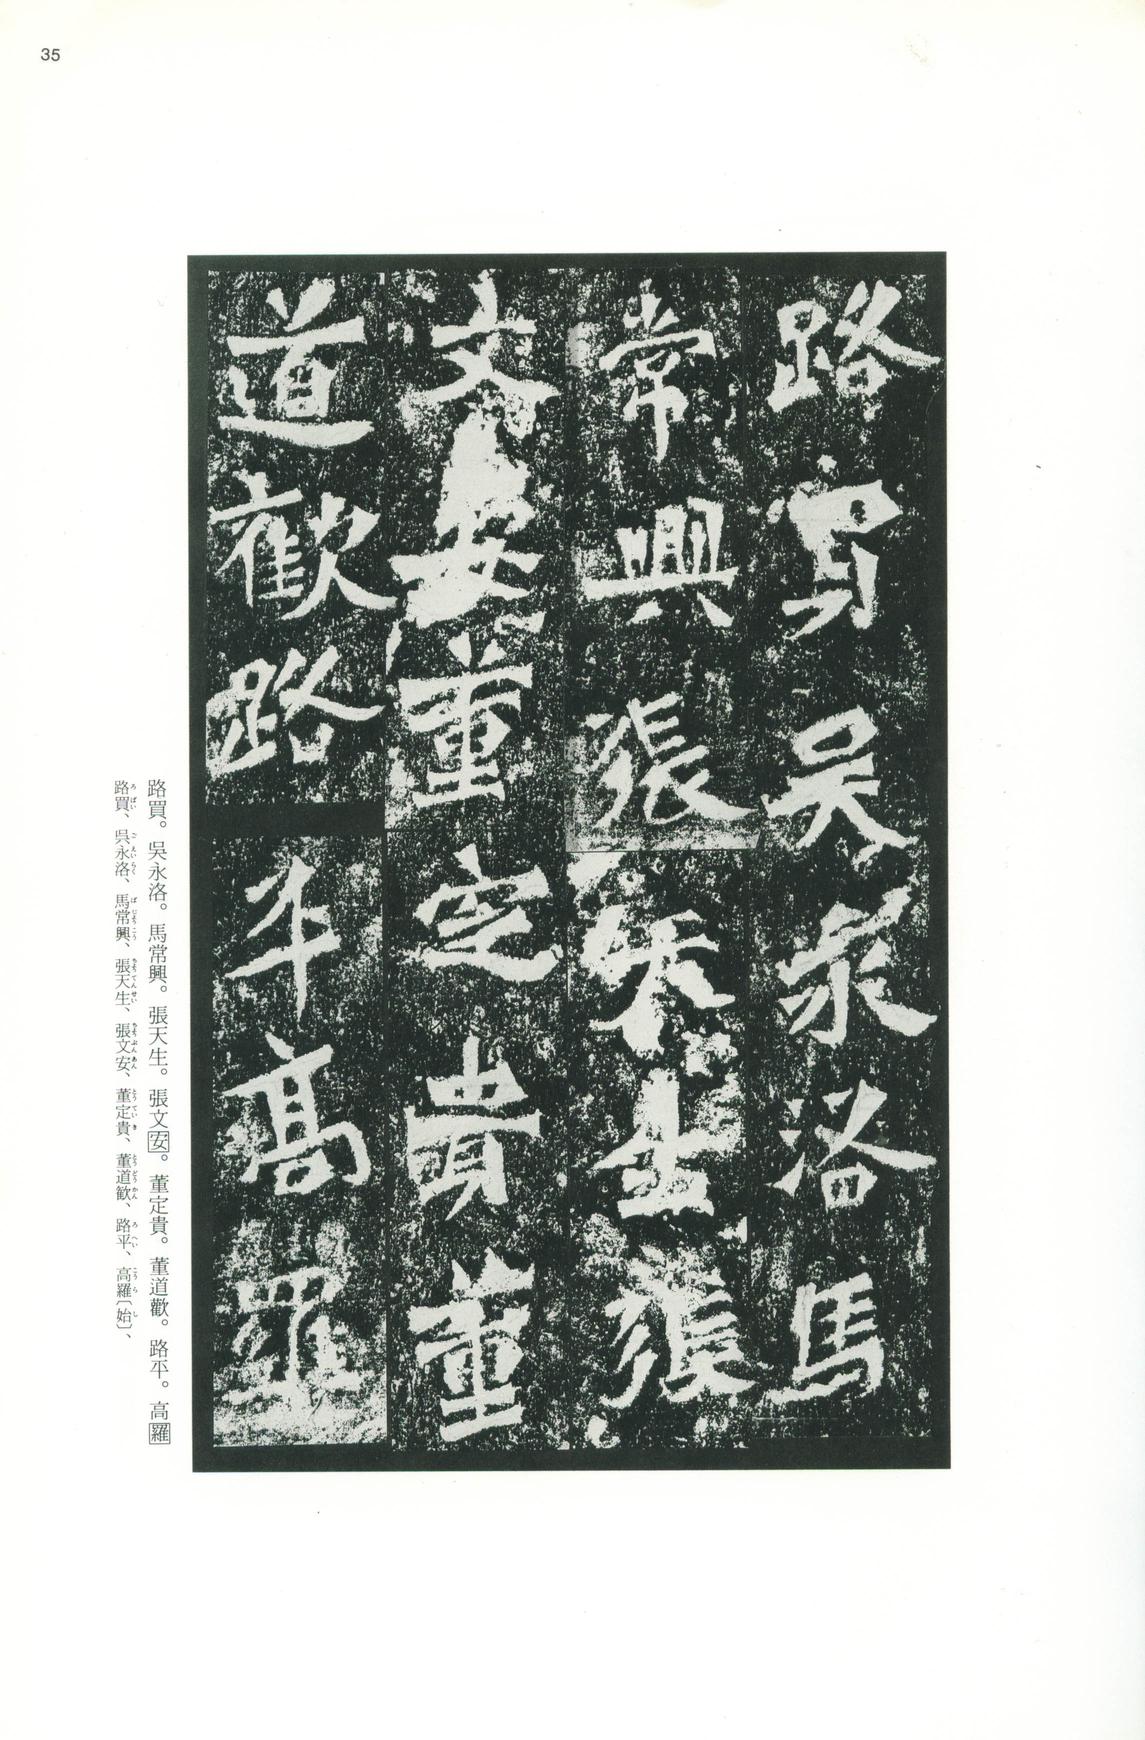 35
路買吳永洛馬
常興張天生張
文安董定貴董
道歡路平高羅
路買。吳永洛。馬常興。張天生。張文安。董定貴。董道歡。路平。高羅
路買、呉永洛、馬常興、張天生、張文安、董定貴、董道歓、路平、高羅〔始〕、